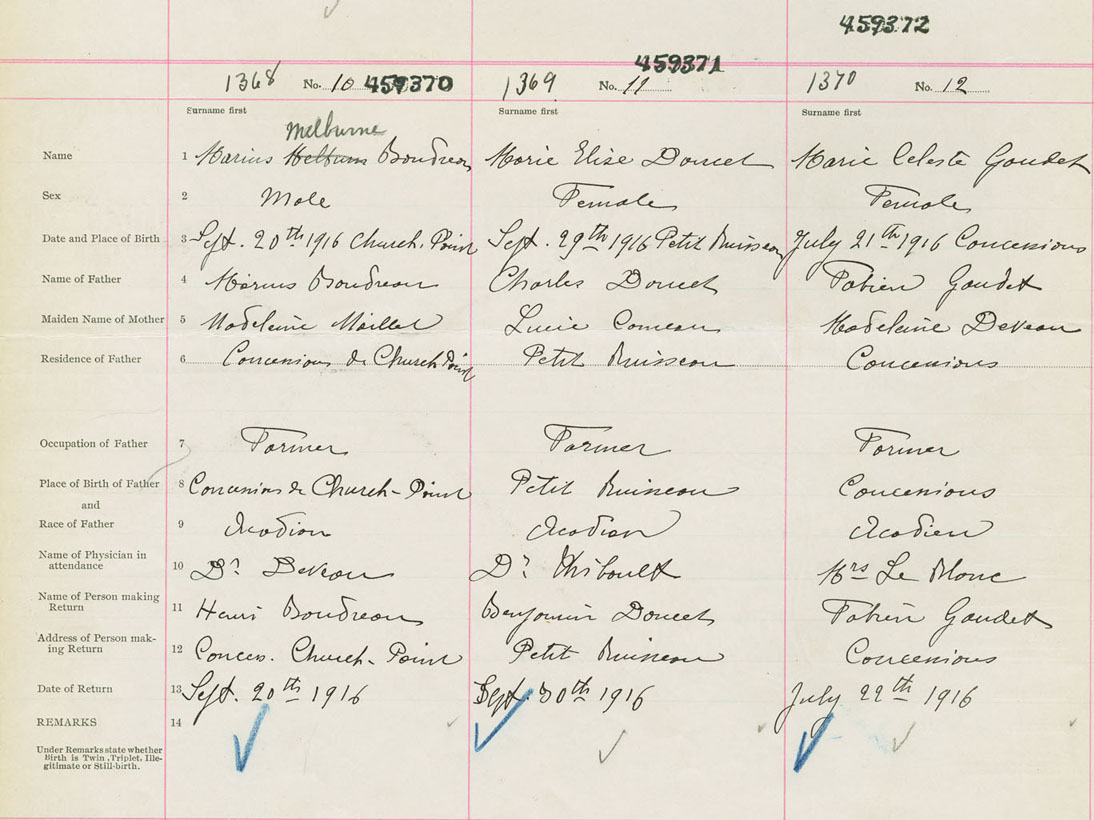 459372
459371
1368 No. 10 459370 1369 No. 11 1370 No. 12
Surname first Surname first Surname first
Melburne
Name 1 Marius Boudreau Marie Elise Doucet Marie Celeste Gaudet
Sex 2 Male Female Female
Date and Place of Birth 3 Sept. 20th 1916 Church Point Sept. 29th 1916 Petit Ruisseau July 21th 1916 Concessions
Name of Father 4 Marius Boudreau Charles Doucet Fabien Gaudet
Maiden Name of Mother 5 Madeleine Maillet Lucie Comeau Madeleine Deveau
Residence of Father 6 Concessions de Church Point Petit Ruisseau Concessions
Occupation of Father 7 Farmer Farmer Farmer
Place of Birth of Father 8 Concessions de Church-Point Petit Ruisseau Concessions
and
Race of Father 9 Acadian Acadian Acadien
Name of Physician in
attendance 10 Dr. Deveau Dr. Thibault Mrs Le Blanc
Name of Person making
Return 11 Henri Boudreau Benjamin Doucet Fabien Gaudet
Address of Person mak-
ing Return 12 Conces. Church-Point Petit Ruisseau Concessions
Date of Return 13 Sept. 20th 1916 Sept. 30th 1916 July 22th 1916
REMARKS 14
Under Remarks state whether
Birth is Twin, Triplet, Ille-
gitimate or Still-birth.